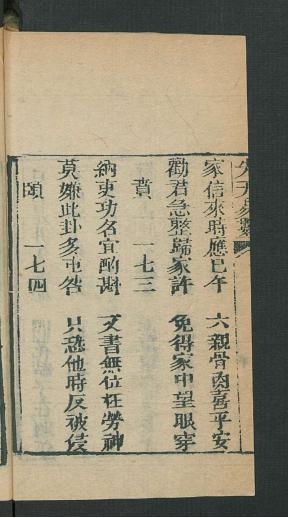 先天易數
家信來時應巳午　六親骨肉喜平安
勸君急整歸家計　免得家中望眼穿
賁　一七三
納吏功名宜酌斟　文書無位枉勞神
莫嫌此卦多屯吝　只恐他時反被侵
頤　一七四